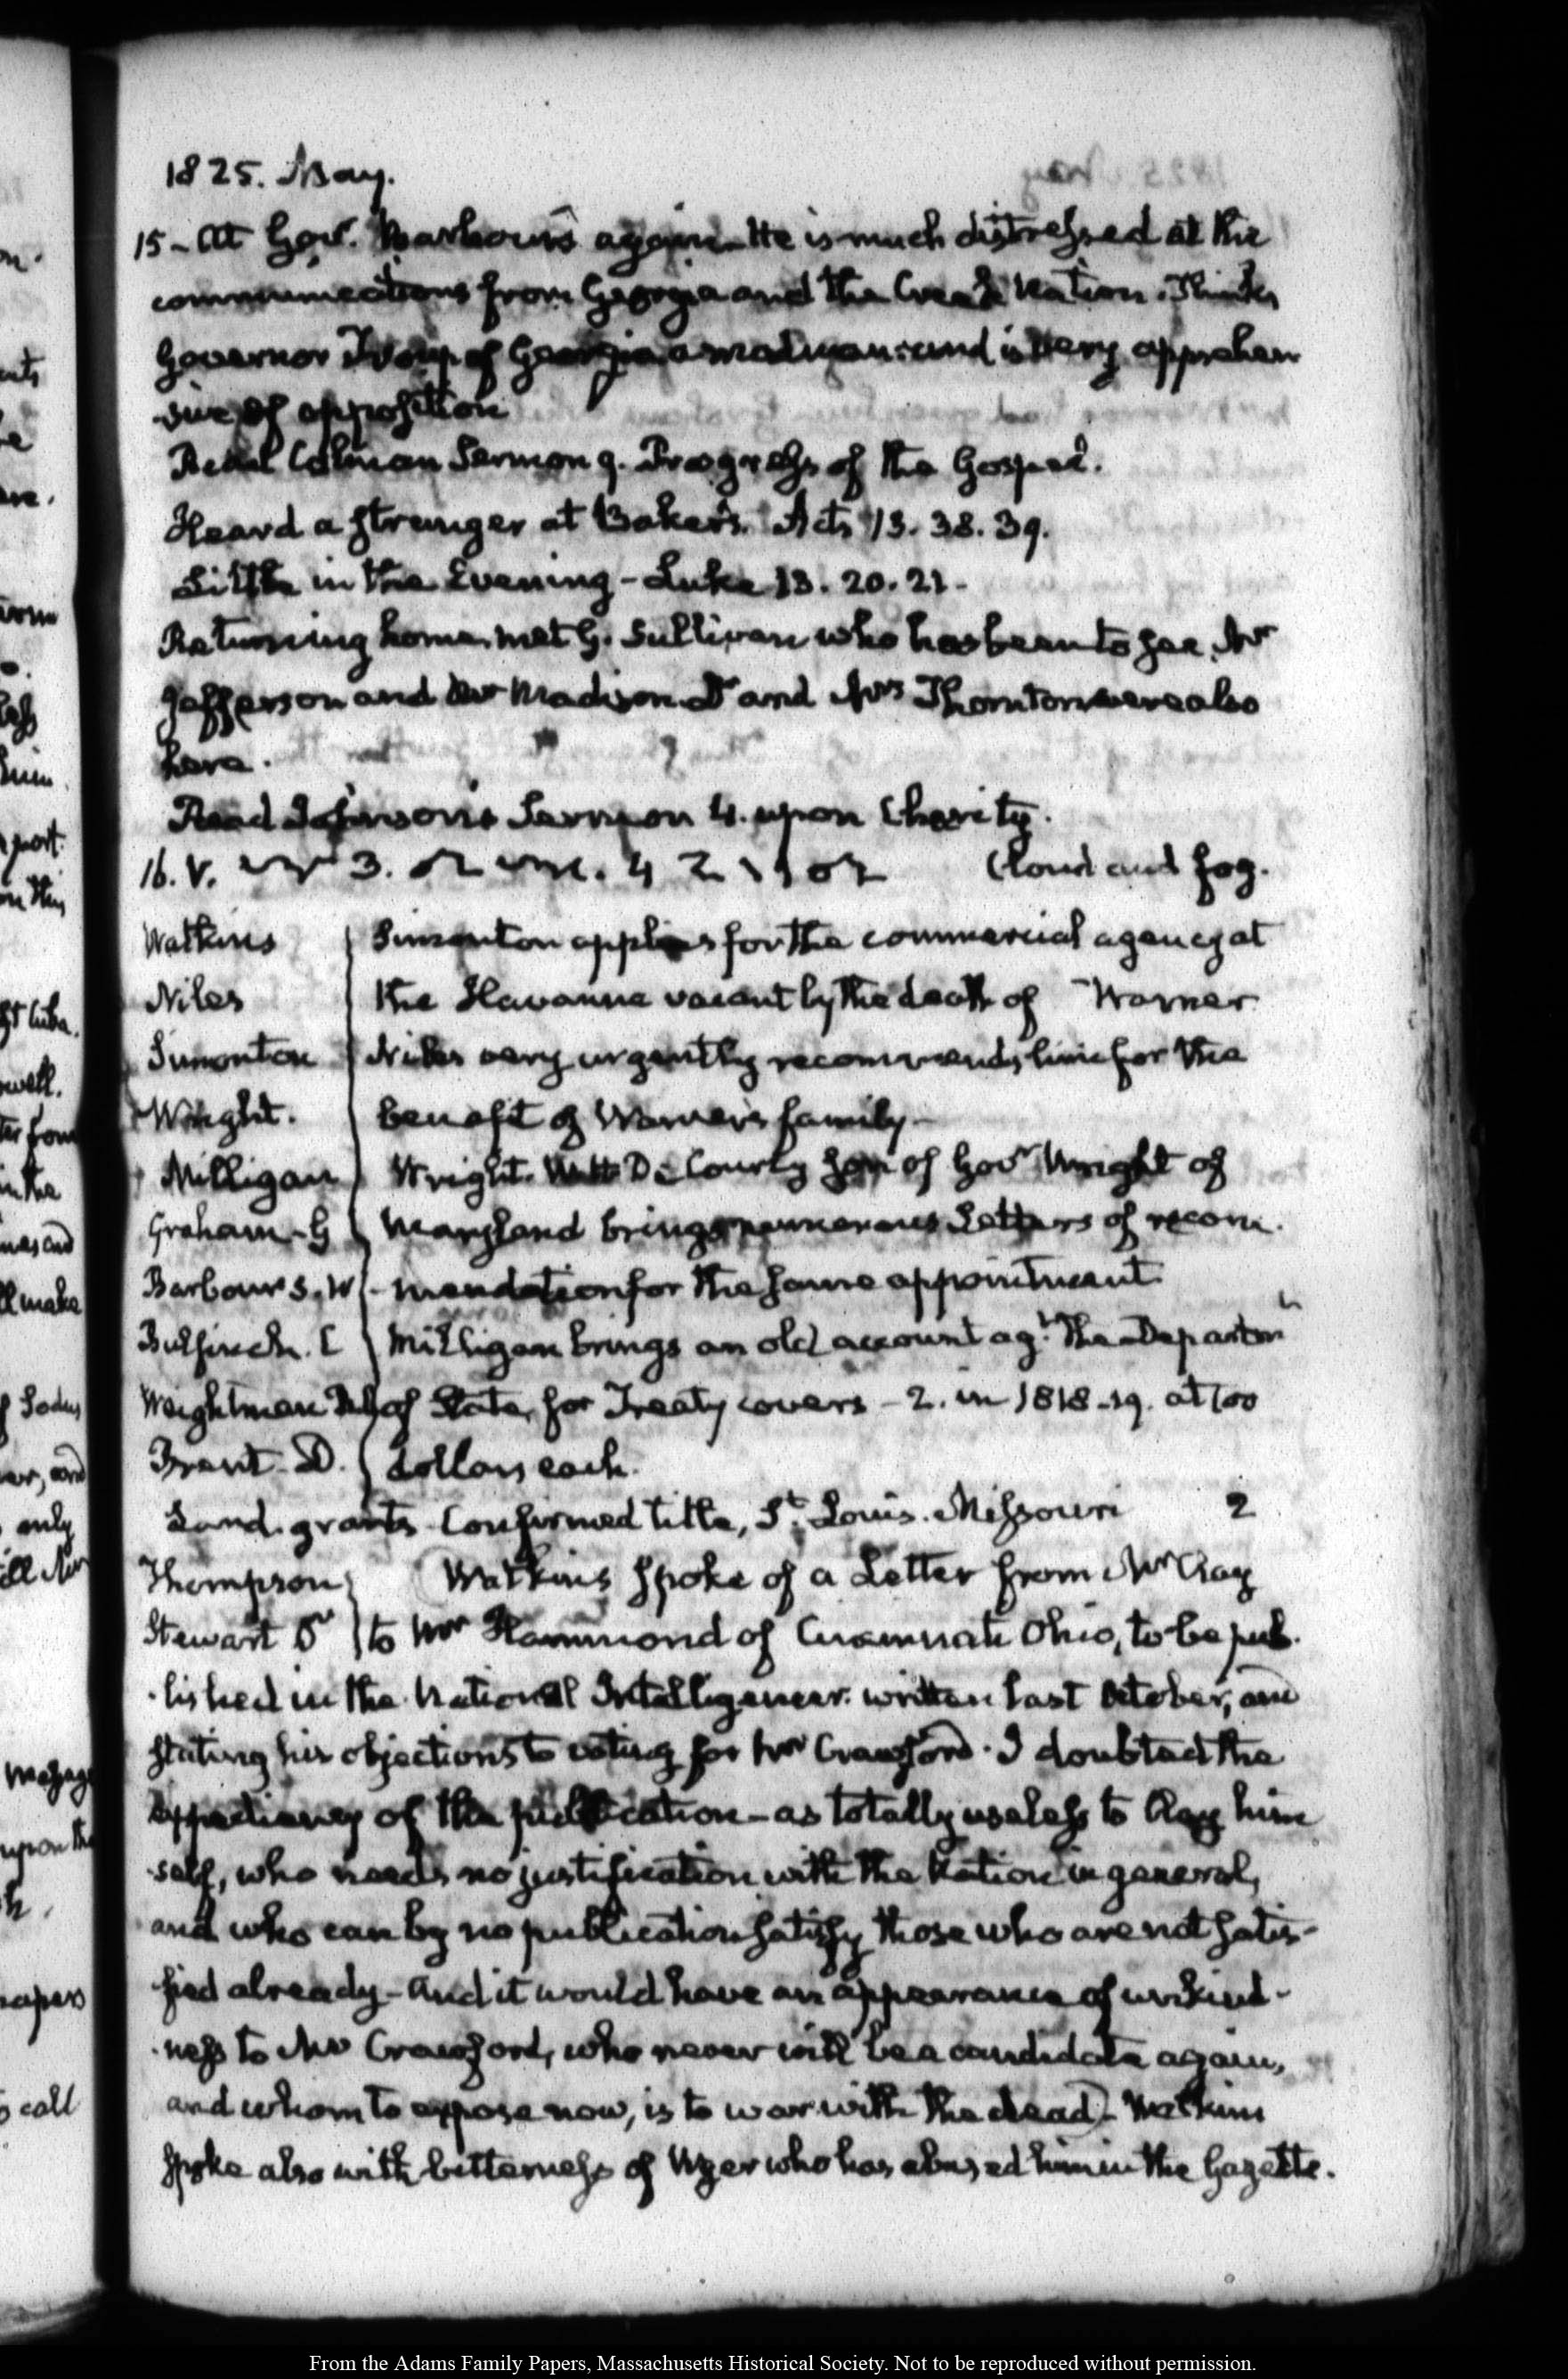 1825. May.
15 - At Govr. Barbour's again - He is much distressed at the
communications from Georgia and the Creek Nation. Thinks
Governor Troup of Georgia a madman: and is very apprehen
sive of opposition
Read Colman Sermon 9. Progress of the Gospel.
Heard a stranger at Baker's. Acts 13. 38. 39.
Little in the Evening - Luke 13. 20. 21 -
Returning home met G. Sullivan who has been to see Mr
Jefferson and Mr Madison Dr and Mrs Thornton were also
here.
Read Johnson's Sermon 4. upon Charity.
16. V. 3. 4 Cloud and fog.
Watkins Simonton applies for the commercial agency at
Niles the Havanna vacant by the death of Warner
Simonton Niles very urgently recommends him for the
Wright. benefit of Warner's family -
Milligan Wright. De Courcy son of Govr Wright of
Graham - G Maryland brings numerous Letters of recom.
Barbour S. W - mendation for the same appointment.
Bulfinch. C Milligan brings an old account agt. the Departm
Weightman of State, for Treaty covers - 2. in 1818-19. at 100
Brent - D. dollars each.
Land. grants - Confirmed title, St. Louis. Missouri 2
Thompson Watkins spoke of a Letter from Mr Clay
Stewart Dr to Mr Hammond of Cincinnati Ohio, to be pub.
-lished in the National Intelligencer. written last October, and
stating his objections to voting for Mr Crawford. I doubted the
expediency of the publication - as totally useless to Clay him
-self, who needs no justification with the Nation in general,
and who can by no publication satisfy those who are not satis-
fied already - And it would have an appearance of unkind-
-ness to Mr Crawford, who never will be a candidate again,
and whom to oppose now, is to war with the dead - Watkins
spoke also with bitterness of who has abused him in the Gazette.
From the Adams Family Papers, Massachusetts Historical Society. Not to be reproduced without permission.